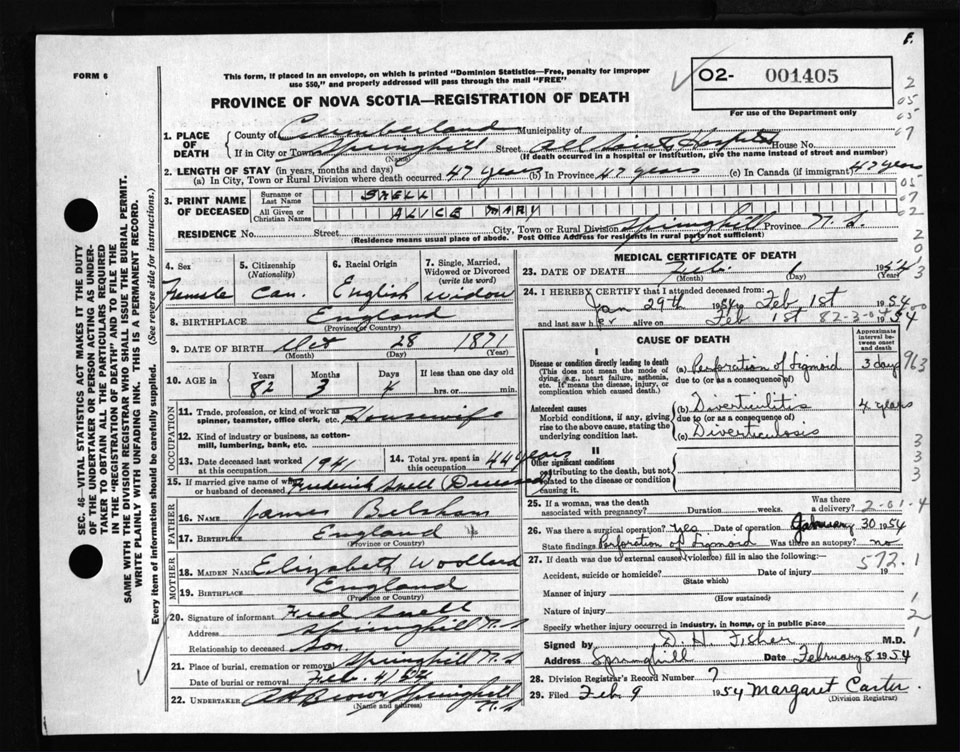 F.
FORM 6
This form, if placed in an envelope, on which is printed "Dominion Statistics—Free, penalty for improper
use $50," and properly addressed will pass through the mail "FREE"
PROVINCE OF NOVA SCOTIA—REGISTRATION OF DEATH
O2- 001405
For use of the Department only
1. PLACE OF DEATH
County of Cumberland Municipality of
If in City or Town Springhill Street All Saints Hospital House No.
(Name) (If death occurred in a hospital or institution, give the name instead of street and number)
2. LENGTH OF STAY (in years, months and days)
(a) In City, Town or Rural Division where death occurred 47 years (b) In Province 47 years (c) In Canada (if immigrant) 47 years
3. PRINT NAME OF DECEASED
Surname or Last Name SNELL
All Given or Christian Names ALICE MARY
RESIDENCE No. Street City, Town or Rural Division Springhill Province N. S.
(Residence means usual place of abode. Post Office Address for residents in rural parts not sufficient)
4. Sex Female
5. Citizenship (Nationality) Can.
6. Racial Origin English
7. Single, Married, Widowed or Divorced (write the word) Widow
8. BIRTHPLACE England
(Province or Country)
9. DATE OF BIRTH Oct 28 1871
(Month) (Day) (Year)
10. AGE in Years Months Days If less than one day old
82 3 4 hrs. or min.
OCCUPATION
11. Trade, profession, or kind of work as spinner, teamster, office clerk, etc. Housewife
12. Kind of industry or business, as cotton-mill, lumbering, bank, etc.
13. Date deceased last worked at this occupation 1941
14. Total yrs. spent in this occupation 44 years
15. If married give name of wife or husband of deceased Frederick Snell (Deceased)
FATHER
16. NAME James Belsham
17. BIRTHPLACE England
(Province or Country)
MOTHER
18. MAIDEN NAME Elizabeth Woollard
19. BIRTHPLACE England
(Province or Country)
20. Signature of informant Fred Snell
Address Springhill N. S
Relationship to deceased Son.
21. Place of burial, cremation or removal Springhill N. S
Date of burial or removal Feb. 4/54
22. UNDERTAKER Brown Springhill N. S
(Name and address)
MEDICAL CERTIFICATE OF DEATH
23. DATE OF DEATH Feb. 1 1954
(Month) (Day) (Year)
24. I HEREBY CERTIFY that I attended deceased from:
Jan 29th 1954 to Feb 1st 1954
and last saw her alive on Feb 1st 1954
82-3-
CAUSE OF DEATH
Approximate interval between onset and death
I
Disease or condition directly leading to death
(This does not mean the mode of dying, e.g., heart failure, asthenia, etc. It means the disease, injury, or complication which caused death.)
(a) Perforation of Sigmoid 3 days
due to (or as a consequence of)
Antecedent causes
Morbid conditions, if any, giving rise to the above cause, stating the underlying condition last.
(b) Diverticulitis 4 years
due to (or as a consequence of)
(c) Diverticulosis
II
Other significant conditions
contributing to the death, but not related to the disease or condition causing it.
25. If a woman, was the death associated with pregnancy? Duration weeks. Was there a delivery?
2-01-4
26. Was there surgical operation? Yes Date of operation January 30 1954
State findings Perforation of Sigmoid Was there an autopsy? no
27. If death was due to external causes (violence) fill in also the following:—
572.1
Accident, suicide or homicide? Date of injury 19
(State which)
Manner of injury
(How sustained)
Nature of injury
Specify whether injury occurred in industry, in home, or in public place
Signed by D. H. Fisher M.D.
Address Springhill Date February 8 1954
28. Division Registrar's Record Number 7
29. Filed Feb 9 1954 Margaret Carter
(Division Registrar)
SEC. 46 VITAL STATISTICS ACT MAKES IT THE DUTY
OF THE UNDERTAKER OR PERSON ACTING AS UNDER-
TAKER TO OBTAIN ALL THE PARTICULARS REQUIRED
IN THE "REGISTRATION OF DEATH" AND TO FILE THE
SAME WITH THE DIVISION REGISTRAR WHO SHALL ISSUE THE BURIAL PERMIT.
WRITE PLAINLY WITH UNFADING INK. THIS IS A PERMANENT RECORD.
Every item of information should be carefully supplied. (See reverse side for instructions.)
2
05
05
07
05
07
02
2
0
3
963
3
3
3
1
2
1